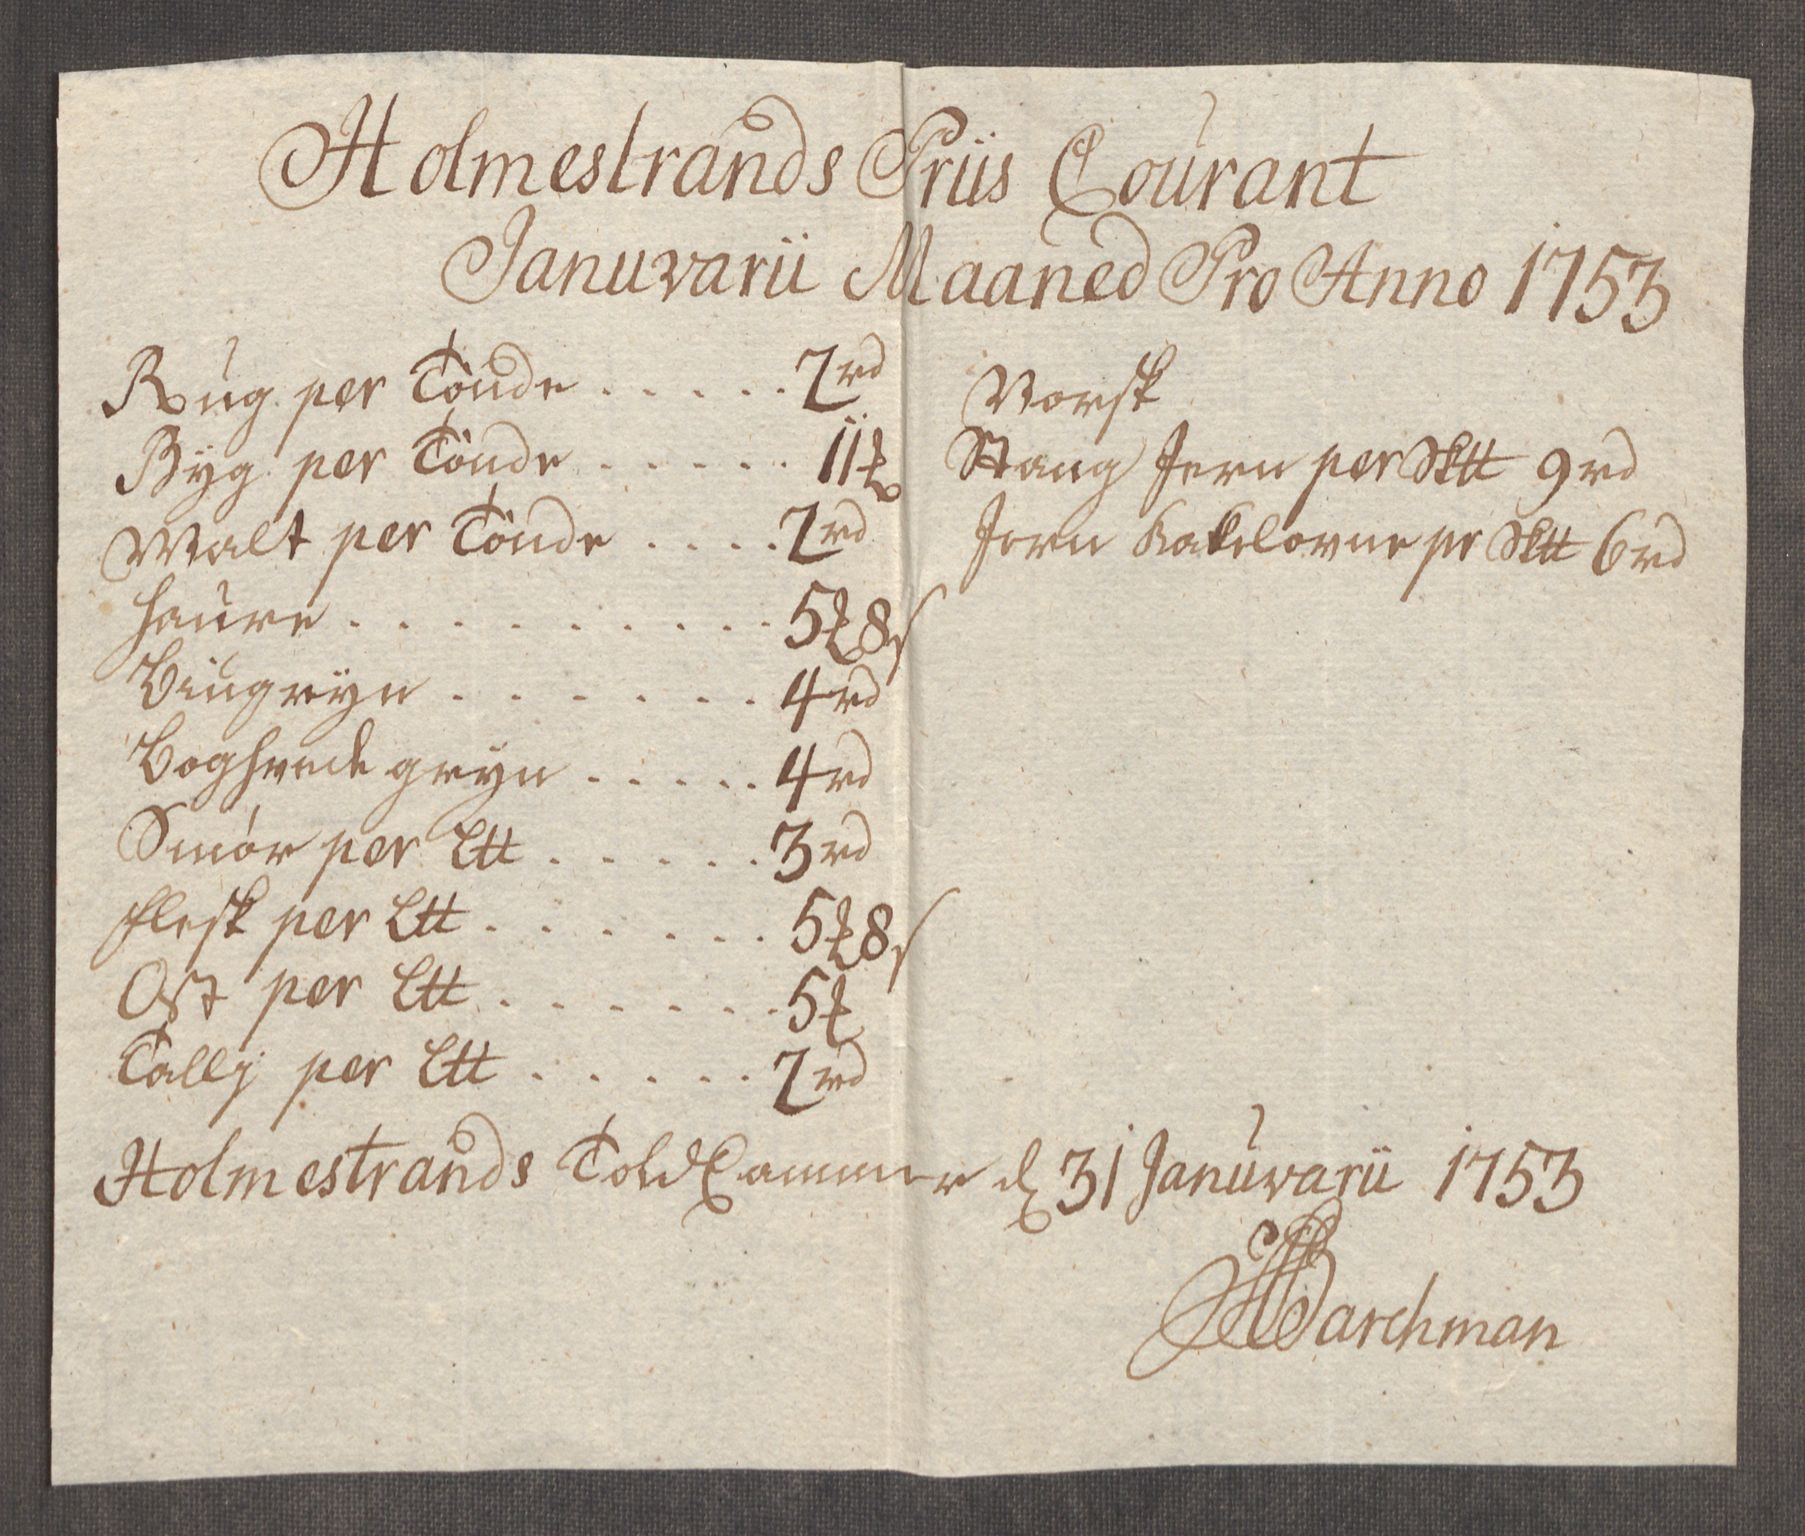 Holmestrands Priis Courant
Januvarii Maaned Pro Anno 1753
Rug per Tønde . . . . . 2rd
Byg per Tønde . . . . . 11 ꝑ
Malt per Tønde . . . . 2rd
Haure . . . . . . . . . . 5 ꝑ 8 s
Biugryn . . . . . . . 4rd
Boghvede gryn . . . . . 4rd
Smør per L℔ . . . . . 3rd
Flesk per L℔ . . . . . . . 5 ꝑ 8 s
Ost per L℔ . . . . . . . 5 ꝑ
Tallig per L℔ . . . . . . 2rd
Norsk
Stang Jern per Sk℔ 9rd
Jern Kakelovne pr Sk℔ 6rd
Holmestrands Told Cammer d. 31 Januvarii 1753
Barchman